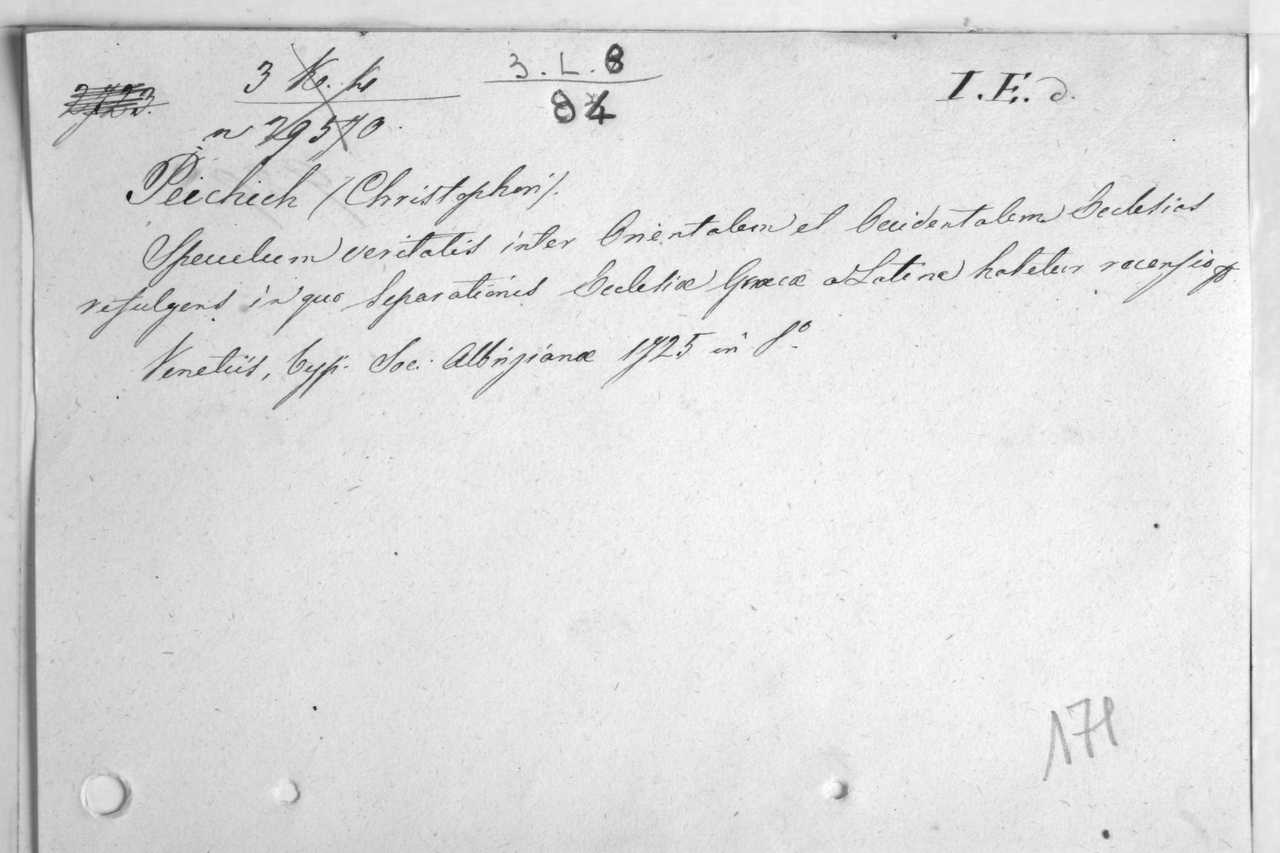 2723.
3 K. k
n 29570.
3. L. 8
84
I. E. d.
Peichich (Christophori).
Speculum veritatis inter Orientalem et Occidentalem Ecclesias
refulgens in quo Separationis Ecclesiæ Græcæ a Latina habetur recensio
Venetiis, typ. Soc. Albrizianæ 1725 in 8º
171